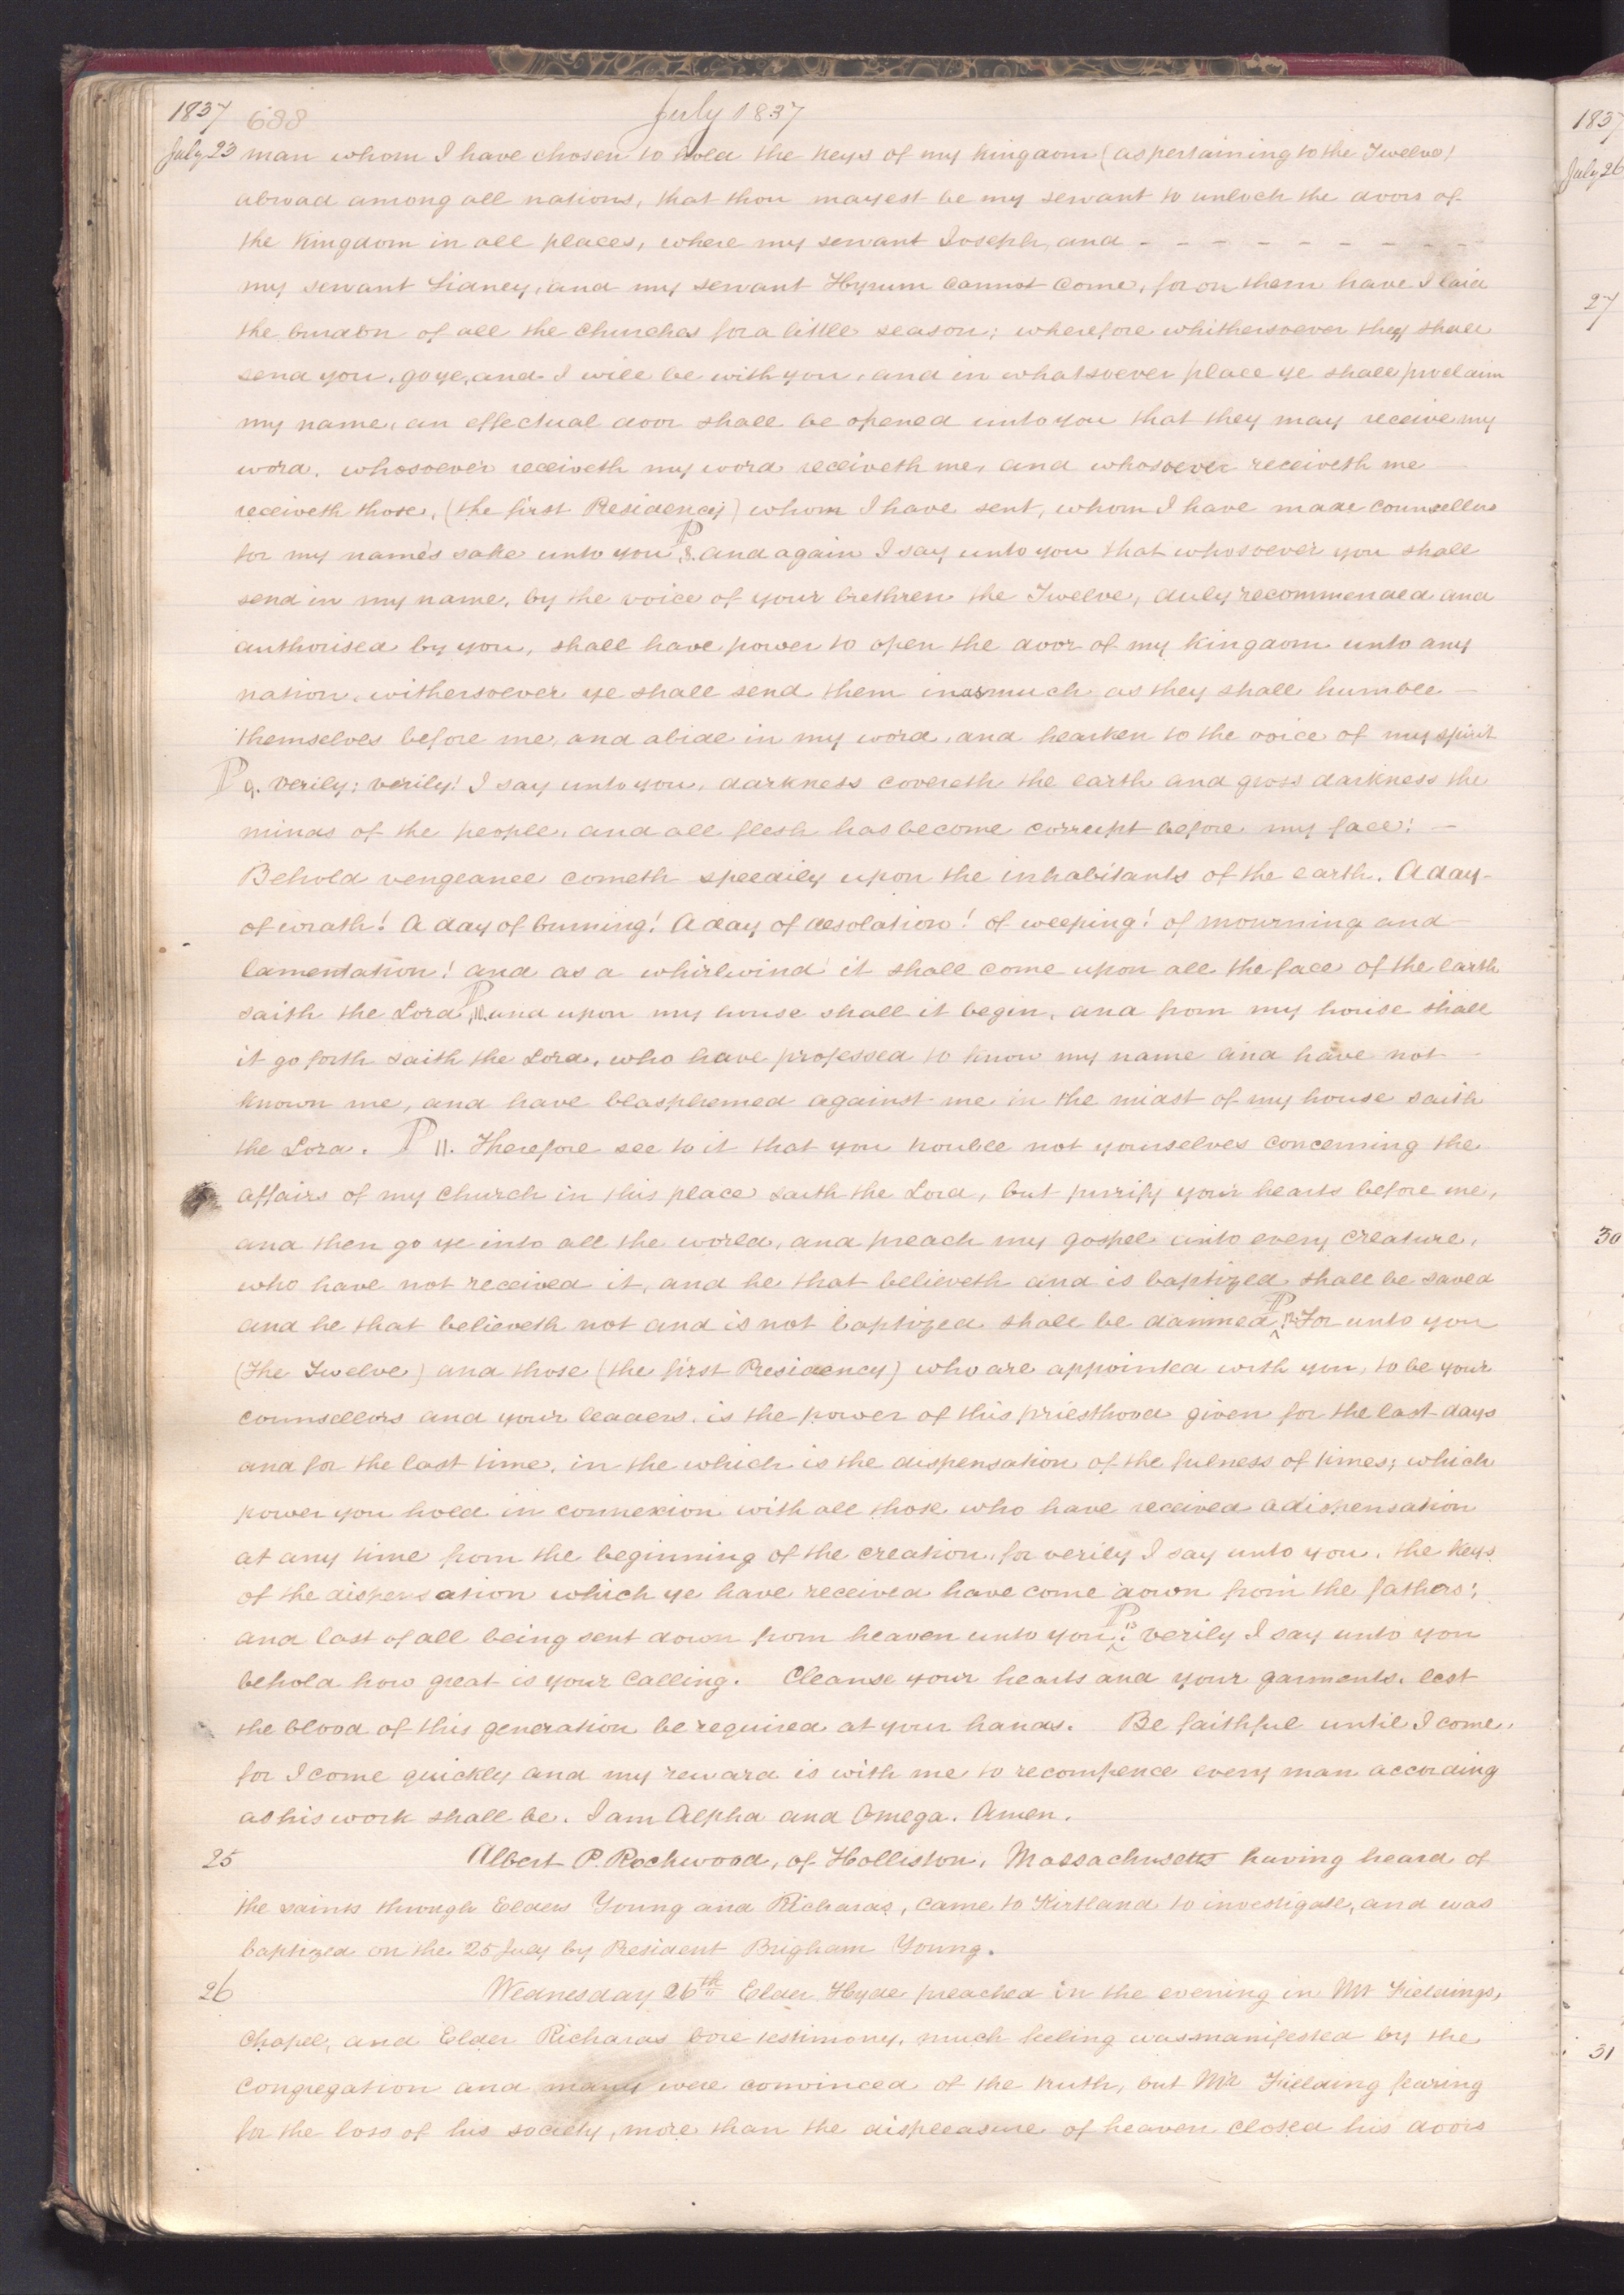 1837 688 July 1837
July 23 man whom I have chosen to hold the keys of my kingdom (as pertaining to the Twelve)
abroad among all nations, that thou mayest be my servant to unlock the doors of
the kingdom in all places, where my servant Joseph, and - - - - - - - - - -
my servant Sidney, and my servant Hyrum cannot come, for on them have I laid
the burden of all the Churches for a little season; wherefore whithersoever they shall
send you, go ye, and I will be with you, and in whatsoever place ye shall proclaim
my name, an effectual door shall be opened unto you that they may receive my
word. whosoever receiveth my word receiveth me, and whosoever receiveth me
receiveth those, (the first Presidency) whom I have sent, whom I have made counsellors
for my name's sake unto you. P 8. and again I say unto you that whosoever you shall
send in my name, by the voice of your brethren the Twelve, duly recommended and
authorised by you, shall have power to open the door of my kingdom unto any
nation, withersoever ye shall send them inasmuch as they shall humble —
themselves before me, and abide in my word, and hearken to the voice of my spirit
P 9. verily; verily! I say unto you, darkness covereth the earth and gross darkness the
minds of the people, and all flesh has become corrupt before my face! —
Behold vengeance cometh speedily upon the inhabitants of the earth. A day-
of wrath! A day of burning! A day of desolation! of weeping! of mourning and —
lamentation! and as a whirlwind it shall come upon all the face of the earth
saith the Lord, P 10. and upon my house shall it begin, and from my house shall
it go forth saith the Lord, who have professed to know my name and have not
known me, and have blasphemed against me in the midst of my house saith
the Lord. P 11. Therefore see to it that you trouble not yourselves concerning the
affairs of my Church in this place saith the Lord, but purify your hearts before me,
and then go ye into all the world, and preach my gospel unto every creature,
who have not received it, and he that believeth and is baptized shall be saved
and he that believeth not and is not baptized shall be damned. P 12 For unto you
(the Twelve) and those (the first Presidency) who are appointed with you, to be your
counsellors and your leaders, is the power of this priesthood given for the last days
and for the last time, in the which is the dispensation of the fulness of times; which
power you hold in connexion with all those who have received a dispensation
at any time from the beginning of the creation, for verily I say unto you, the keys
of the dispensation which ye have received have come down from the fathers;
and last of all being sent down from heaven unto you. P 13 verily I say unto you
behold how great is your calling. Cleanse your hearts and your garments, lest
the blood of this generation be required at your hands. Be faithful until I come,
for I come quickly and my reward is with me to recompence every man according
as his work shall be. I am Alpha and Omega. Amen.
25 Albert P. Rockwood, of Holliston, Massachusetts having heard of
the saints through Elders Young and Richards, came to Kirtland to investigate, and was
baptized on the 25 July by President Brigham Young.
26 Wednesday 26th Elder Hyde preached in the evening in Mr Fieldings,
Chapel, and Elder Richards bore testimony, much feeling was manifested by the
congregation and many were convinced of the truth, but Mr Fielding fearing
for the loss of his society, more than the displeasure of heaven closed his doors
1837
July 26
27
30
31